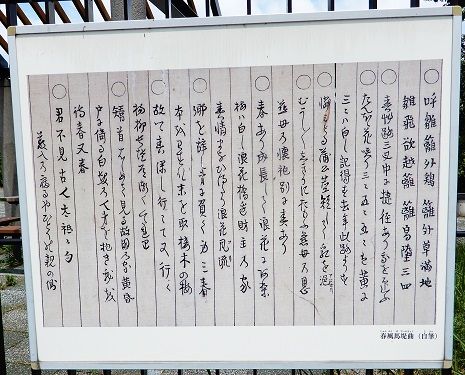 ○呼雛籬外鶏 籬外草満地
雛飛欲越籬 籬高堕三四
○春艸路三叉中に捷径あり我を迎ふ
○たんぽゝ花咲り三々五々五々は黄に
三々は白し記得す去年此路よりす
○憐みとる蒲公茎短して乳を浥
○むかし〳〵しきりにおもふ慈母の恩
慈母の懐袍別に春あり
○春あり成長して浪花にあり
梅は白し浪花橋辺財主の家
春情まなび得たり浪花風流
○郷を辞し弟に負く身三春
本をわすれ末を取接木の梅
○故郷春深し行々て又行々
楊柳長堤道漸くくだれり
○矯首はじめて見る故園の家黄昏
戸に倚る白髪の人弟を抱き我を
待春又春
○君不見古人太祇が句
藪入の寝るやひとりの親の側
春風馬堤曲(自筆)